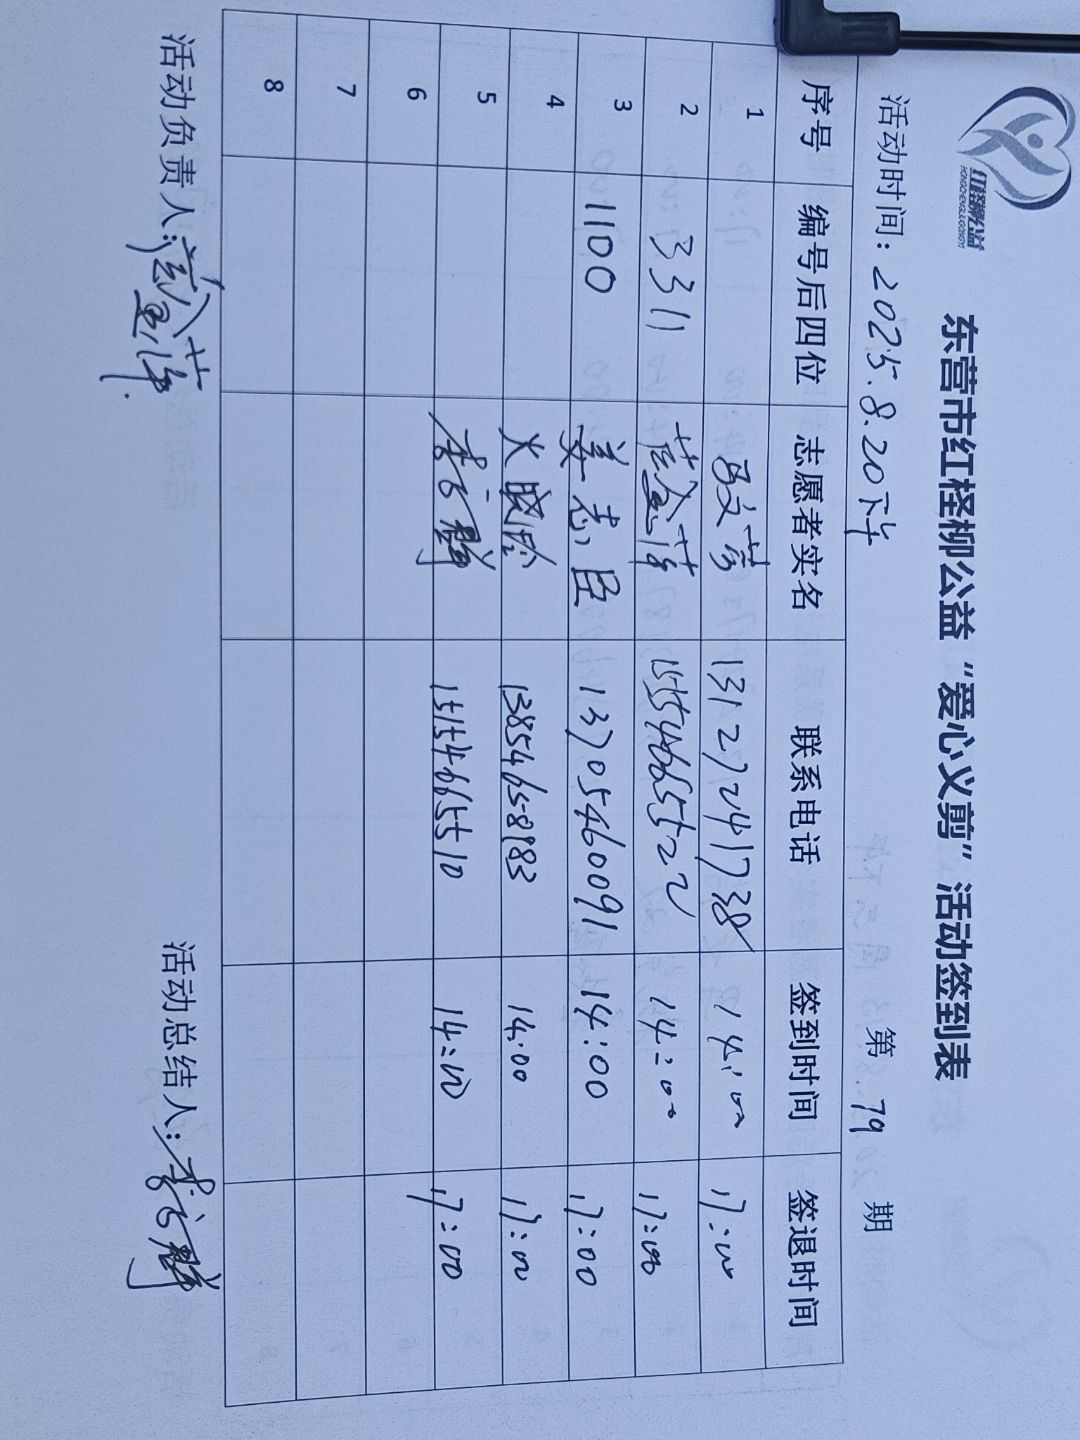 红柽柳公益
东营市红柽柳公益“爱心义剪”活动签到表
活动时间：2025.8.20下午 第 79 期
序号 编号后四位 志愿者实名 联系电话 签到时间 签退时间
1 13127241738 14:00 17:00
2 3311 15554666552 14:00 17:00
3 1100 姜志臣 13705460091 14:00 17:00
4 关晓玲 13854658983 14:00 17:00
5 15154665510 14:00 17:00
6
7
8
活动负责人： 活动总结人：